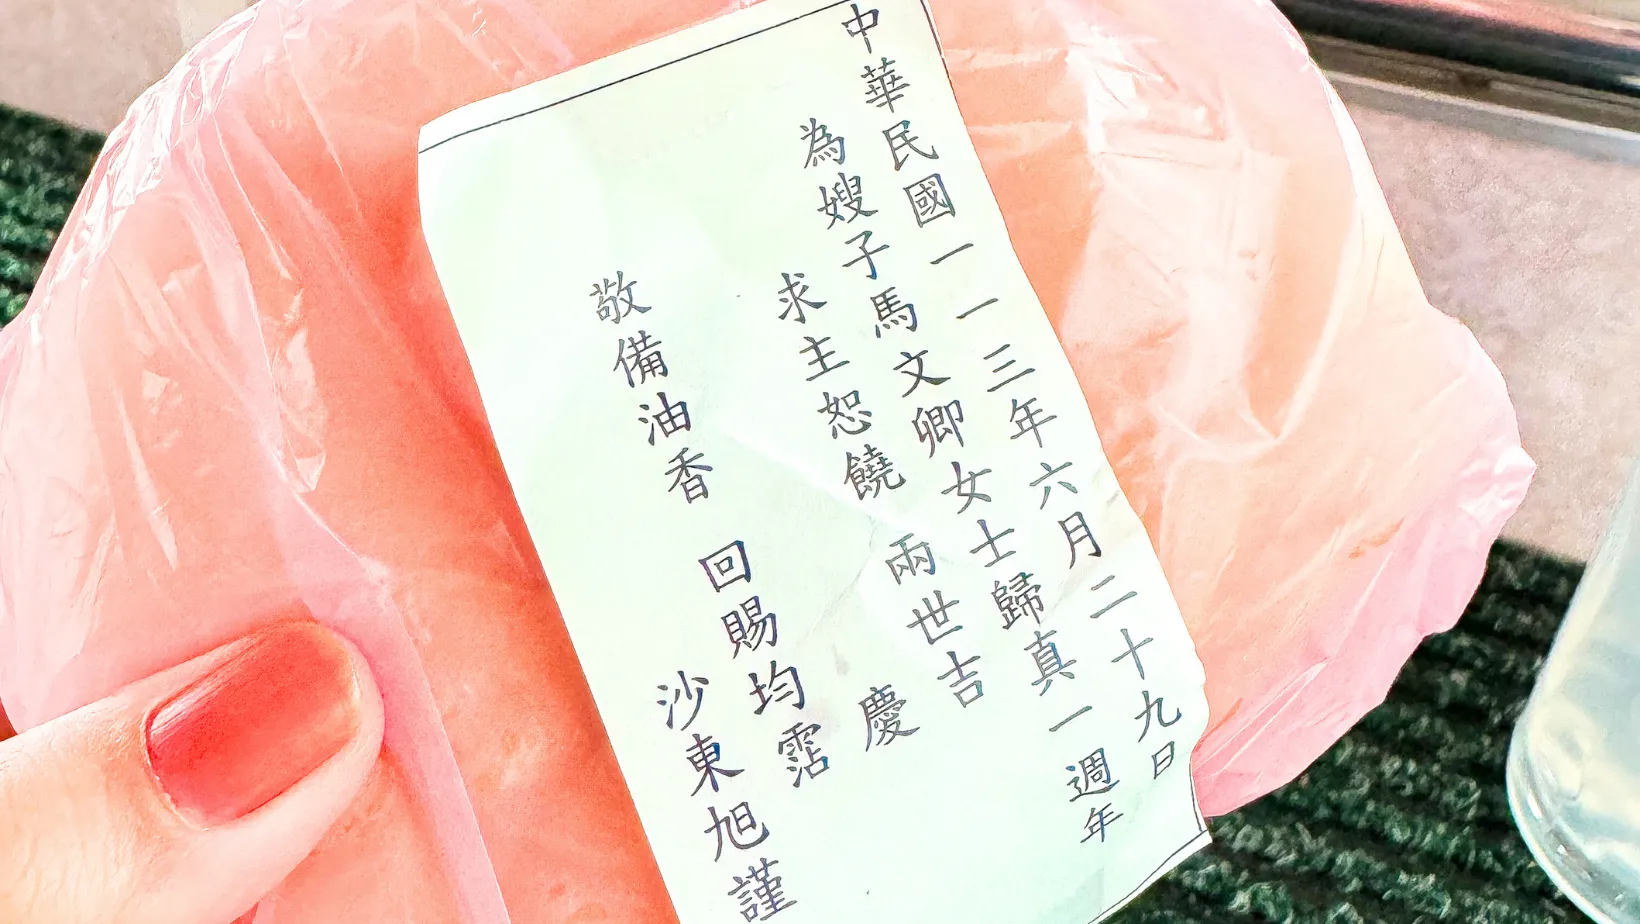 中華民國一一三年六月二十九日
為嫂子馬文卿女士歸真一週年
求主恕饒 兩世吉
慶
敬備油香 回賜均霑
沙東旭謹